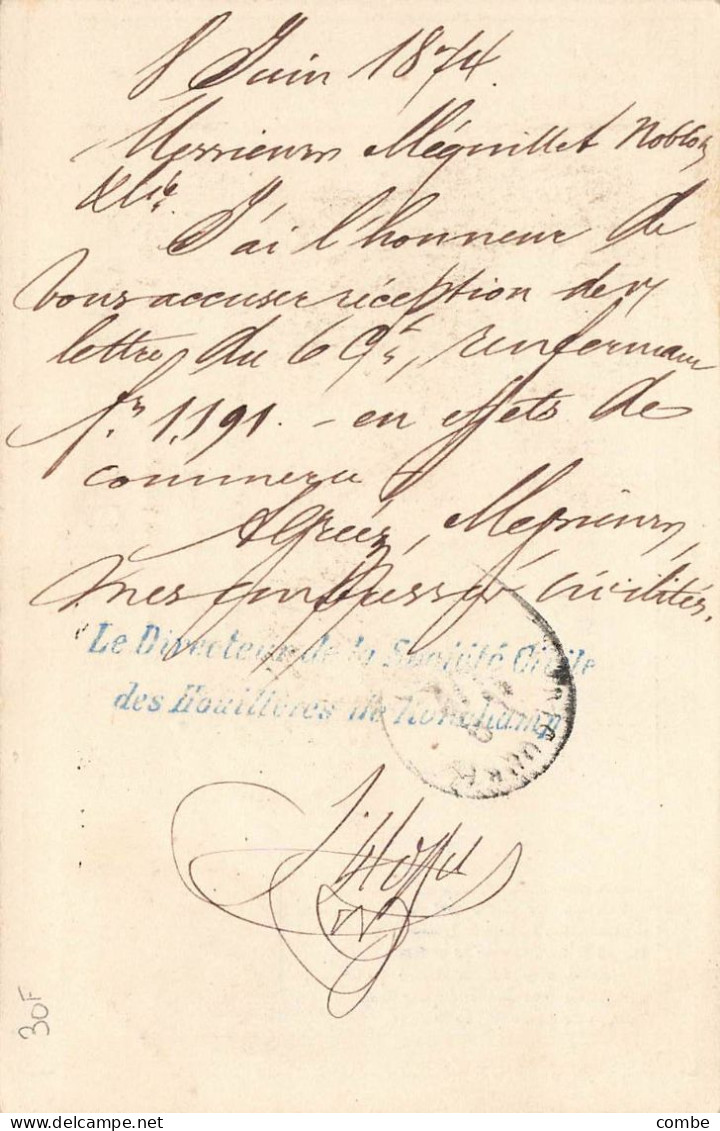 8 Juin 1874.
Messieurs Méquillet Noblot
& Cie.
J'ai l'honneur de
vous accuser réception de v/
lettre du 6 Ct, renfermant
fr. 1,191. – en effets de
commerce
Agréez, Messieurs,
mes empressées civilités.
Le Directeur de la Société Civile
des Houillères de Ronchamp
30F
combe